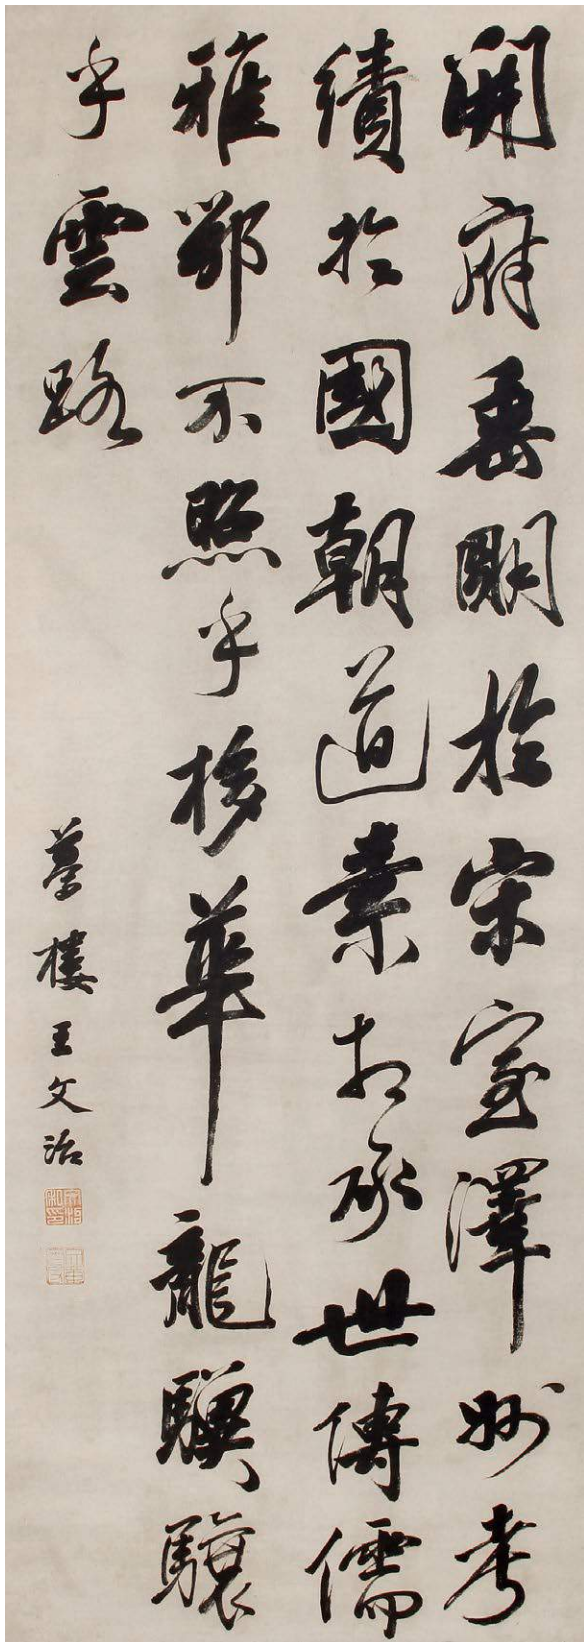 開府垂明於宋室澤州考
績於國朝道素相承世傳儒
雅鄂不照乎栘華龍驥驤
乎雲路
夢樓王文治